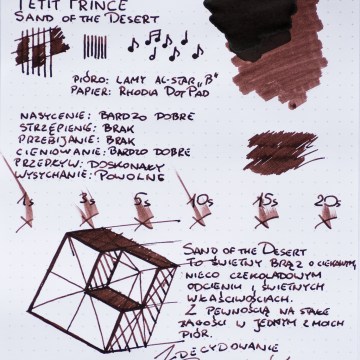 PETIT PRINCE
SAND OF THE DESERT
PIÓRO: LAMY AL-STAR „B"
PAPIER: RHODIA DOTPAD
NASYCENIE: BARDZO DOBRE
STRZĘPIENIE: BRAK
PRZEBIJANIE: BRAK
CIENIOWANIE: BARDZO DOBRE
PRZEPŁYW: DOSKONAŁY
WYSYCHANIE: POWOLNE
1s 3s 5s 10s 15s 20s
SAND OF THE DESERT
TO ŚWIETNY BRĄZ O CIEKAWYM,
NIECO CZEKOLADOWYM
ODCIENIU I ŚWIETNYCH
WŁAŚCIWOŚCIACH.
Z PEWNOŚCIĄ NA STAŁE
ZAGOŚCI W JEDNYM Z MOICH
PIÓR.
ZDECYDOWANIE